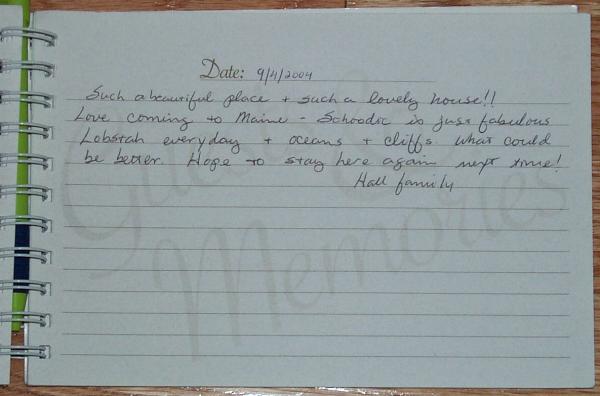 Date: 9/4/2004
Such a beautiful place + such a lovely house!!
Love coming to Maine - Schoodic is just fabulous
Lobstah everyday + oceans + cliffs what could
be better. Hope to stay here again next time!
Hall family
Guest
Memories